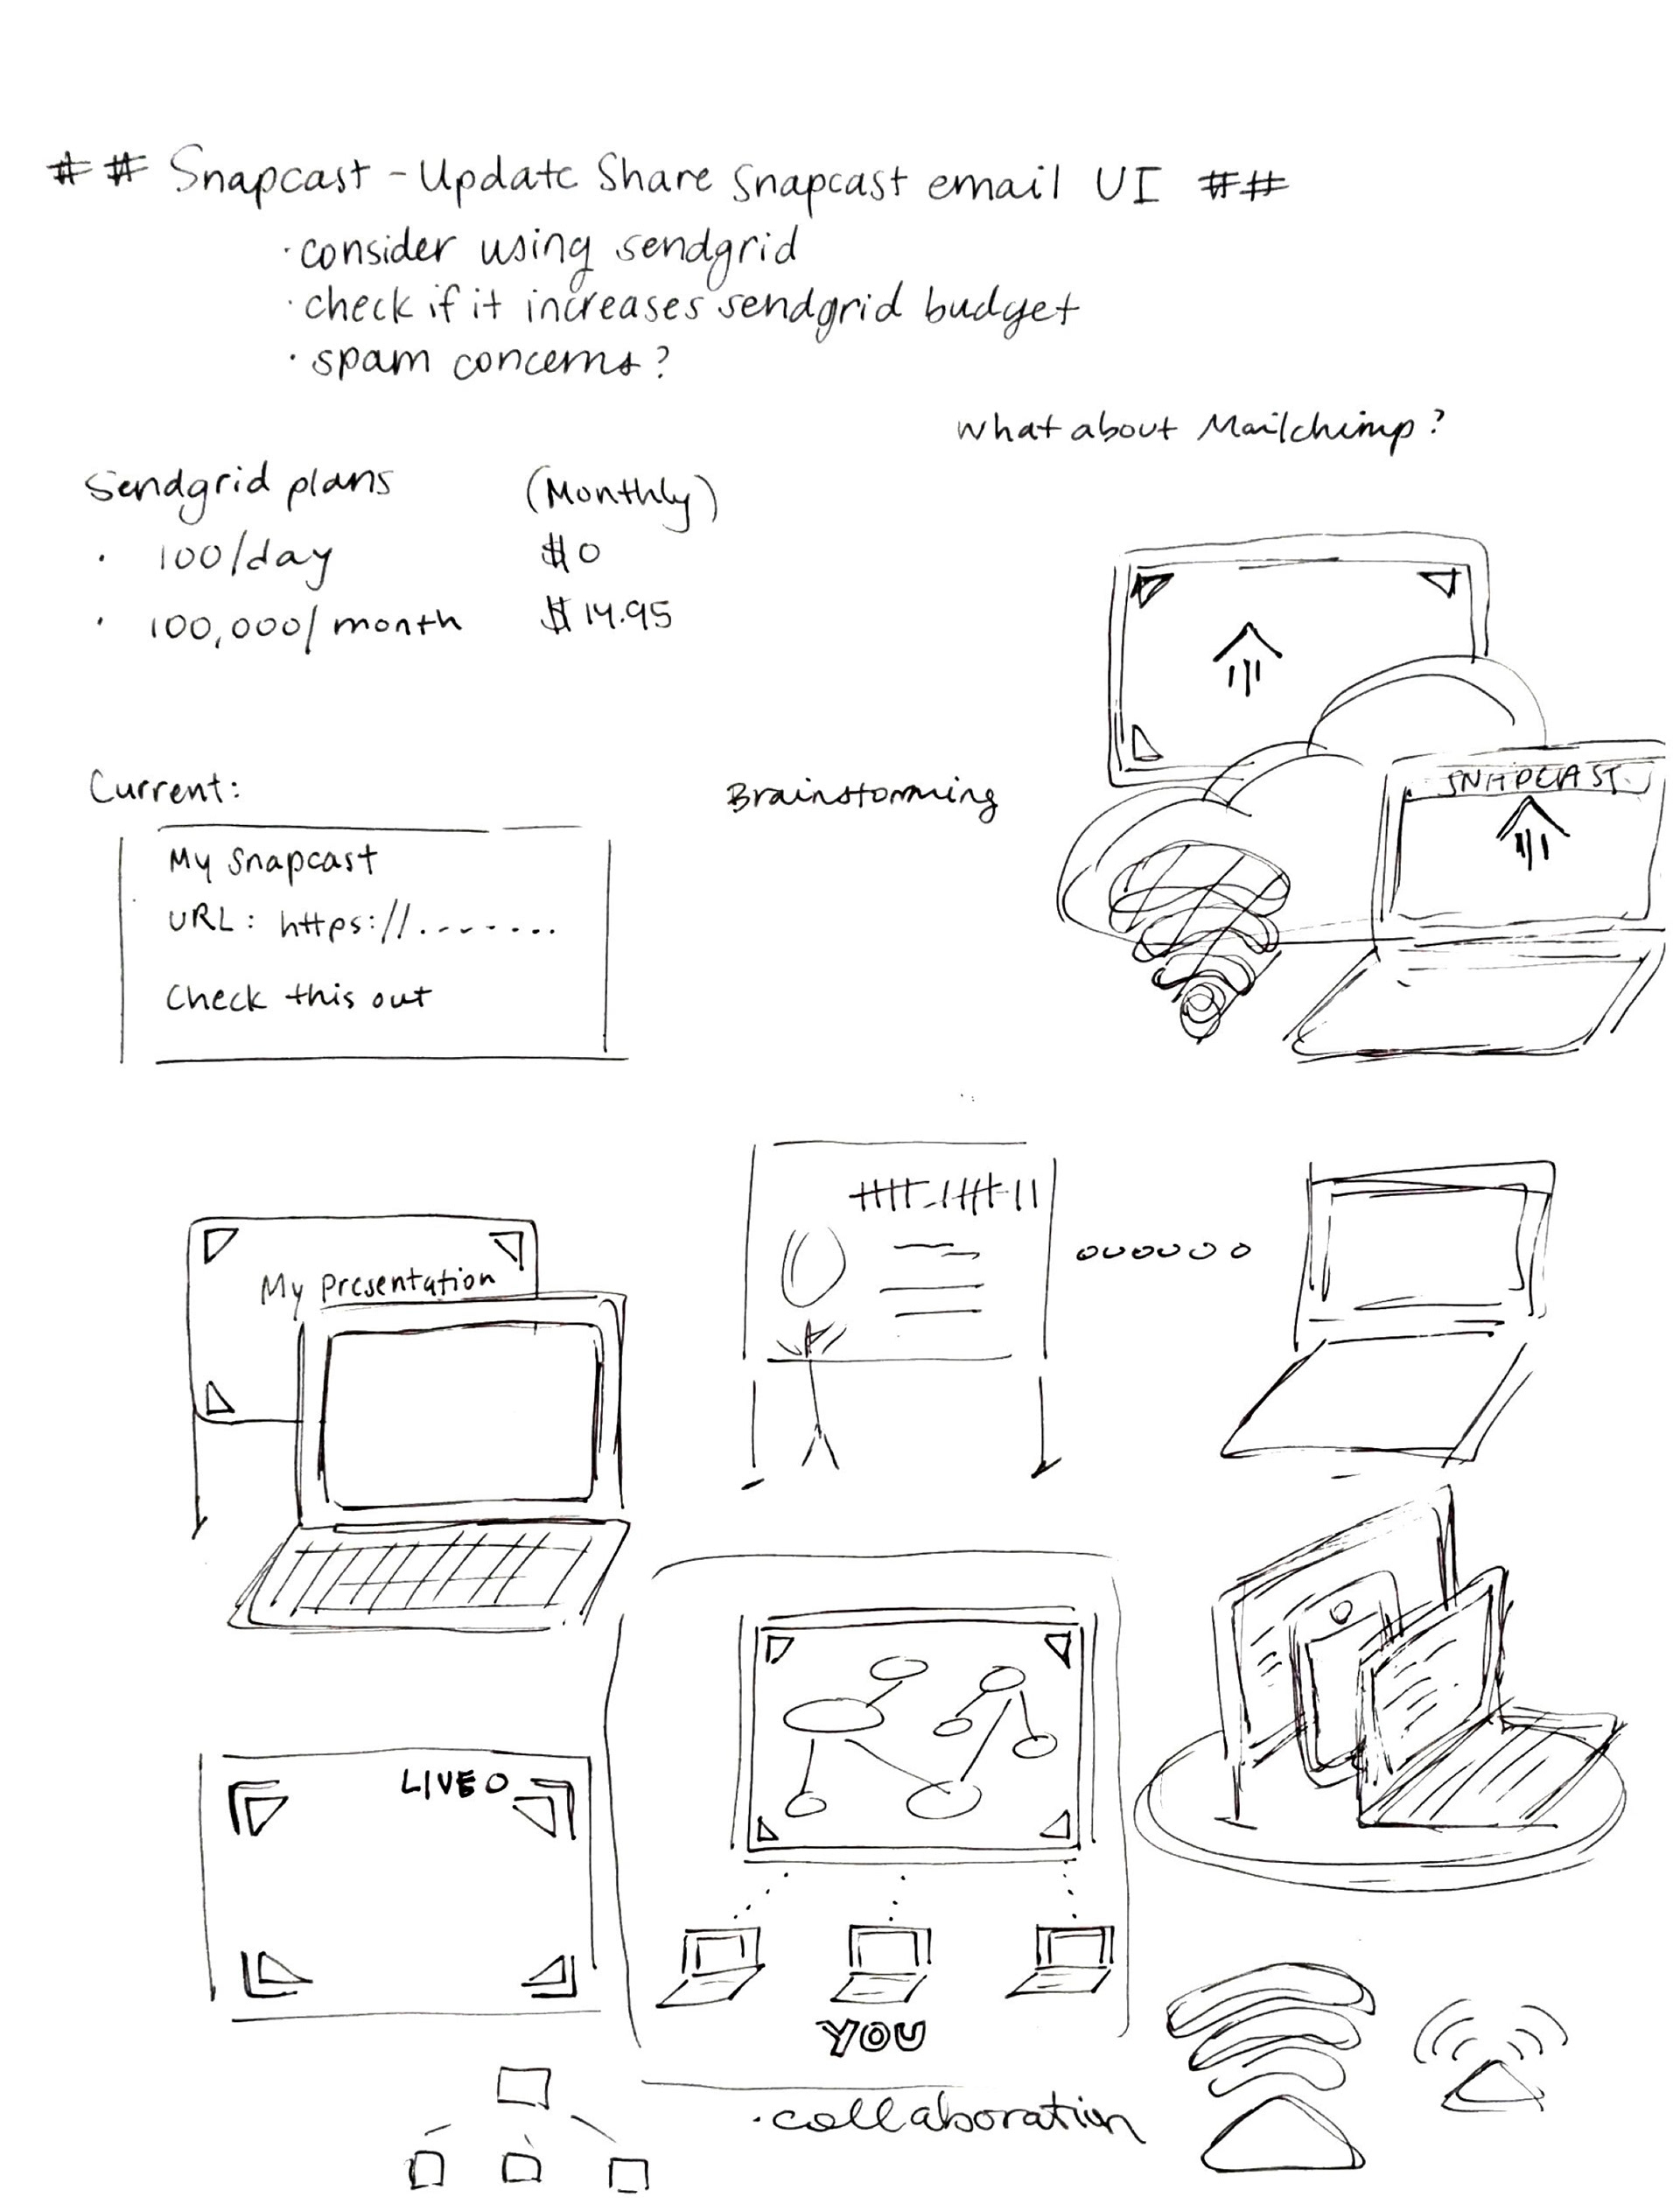 ## Snapcast - Update Share Snapcast email UI ##
· consider using sendgrid
· check if it increases sendgrid budget
· spam concerns?
What about Mailchimp?
Sendgrid plans (Monthly)
· 100/day $0
· 100,000/month $14.95
Current:
My Snapcast
URL: https://.......
Check this out
Brainstorming
SNAPCAST
My Presentation
LIVE
YOU
· collaboration